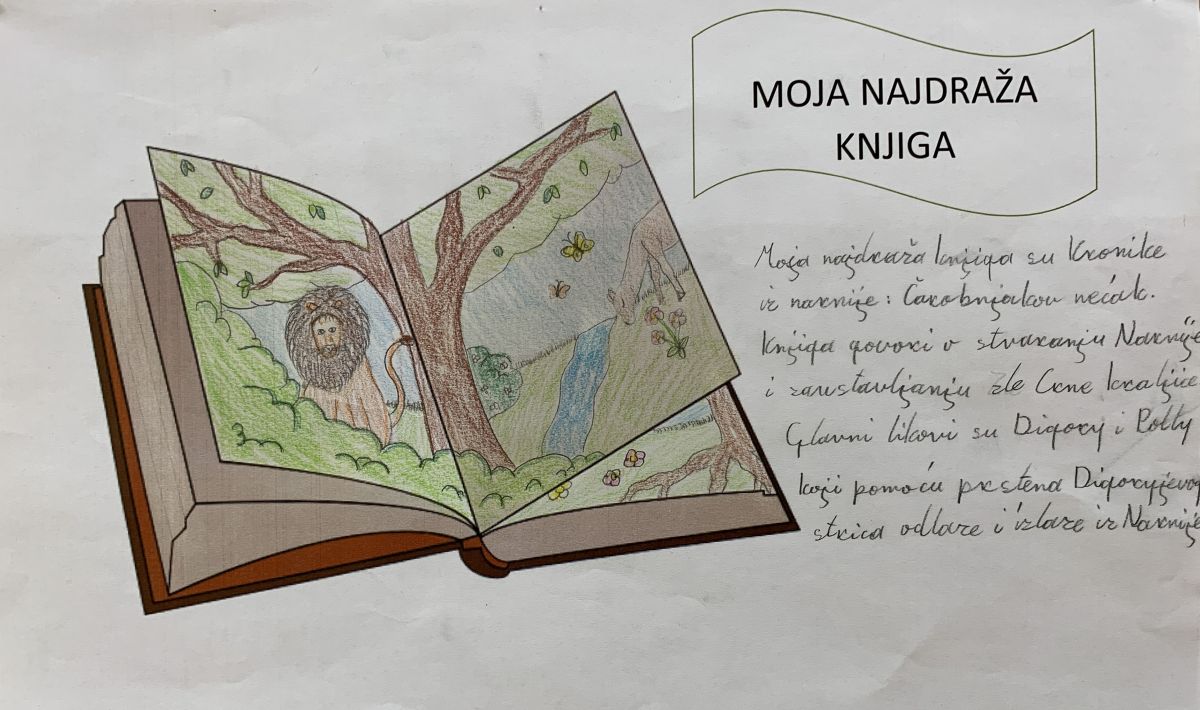 MOJA NAJDRAŽA
KNJIGA
Moja najdraža knjiga su Kronike
iz narnije: Čarobnjakov nećak.
Knjiga govori o stvaranju Narnije
i zaustavljanju zle Crne kraljice
Glavni likovi su Digory i Polly
koji pomoću prstena Digoryjevog
strica odlaze i izlaze iz Narnije